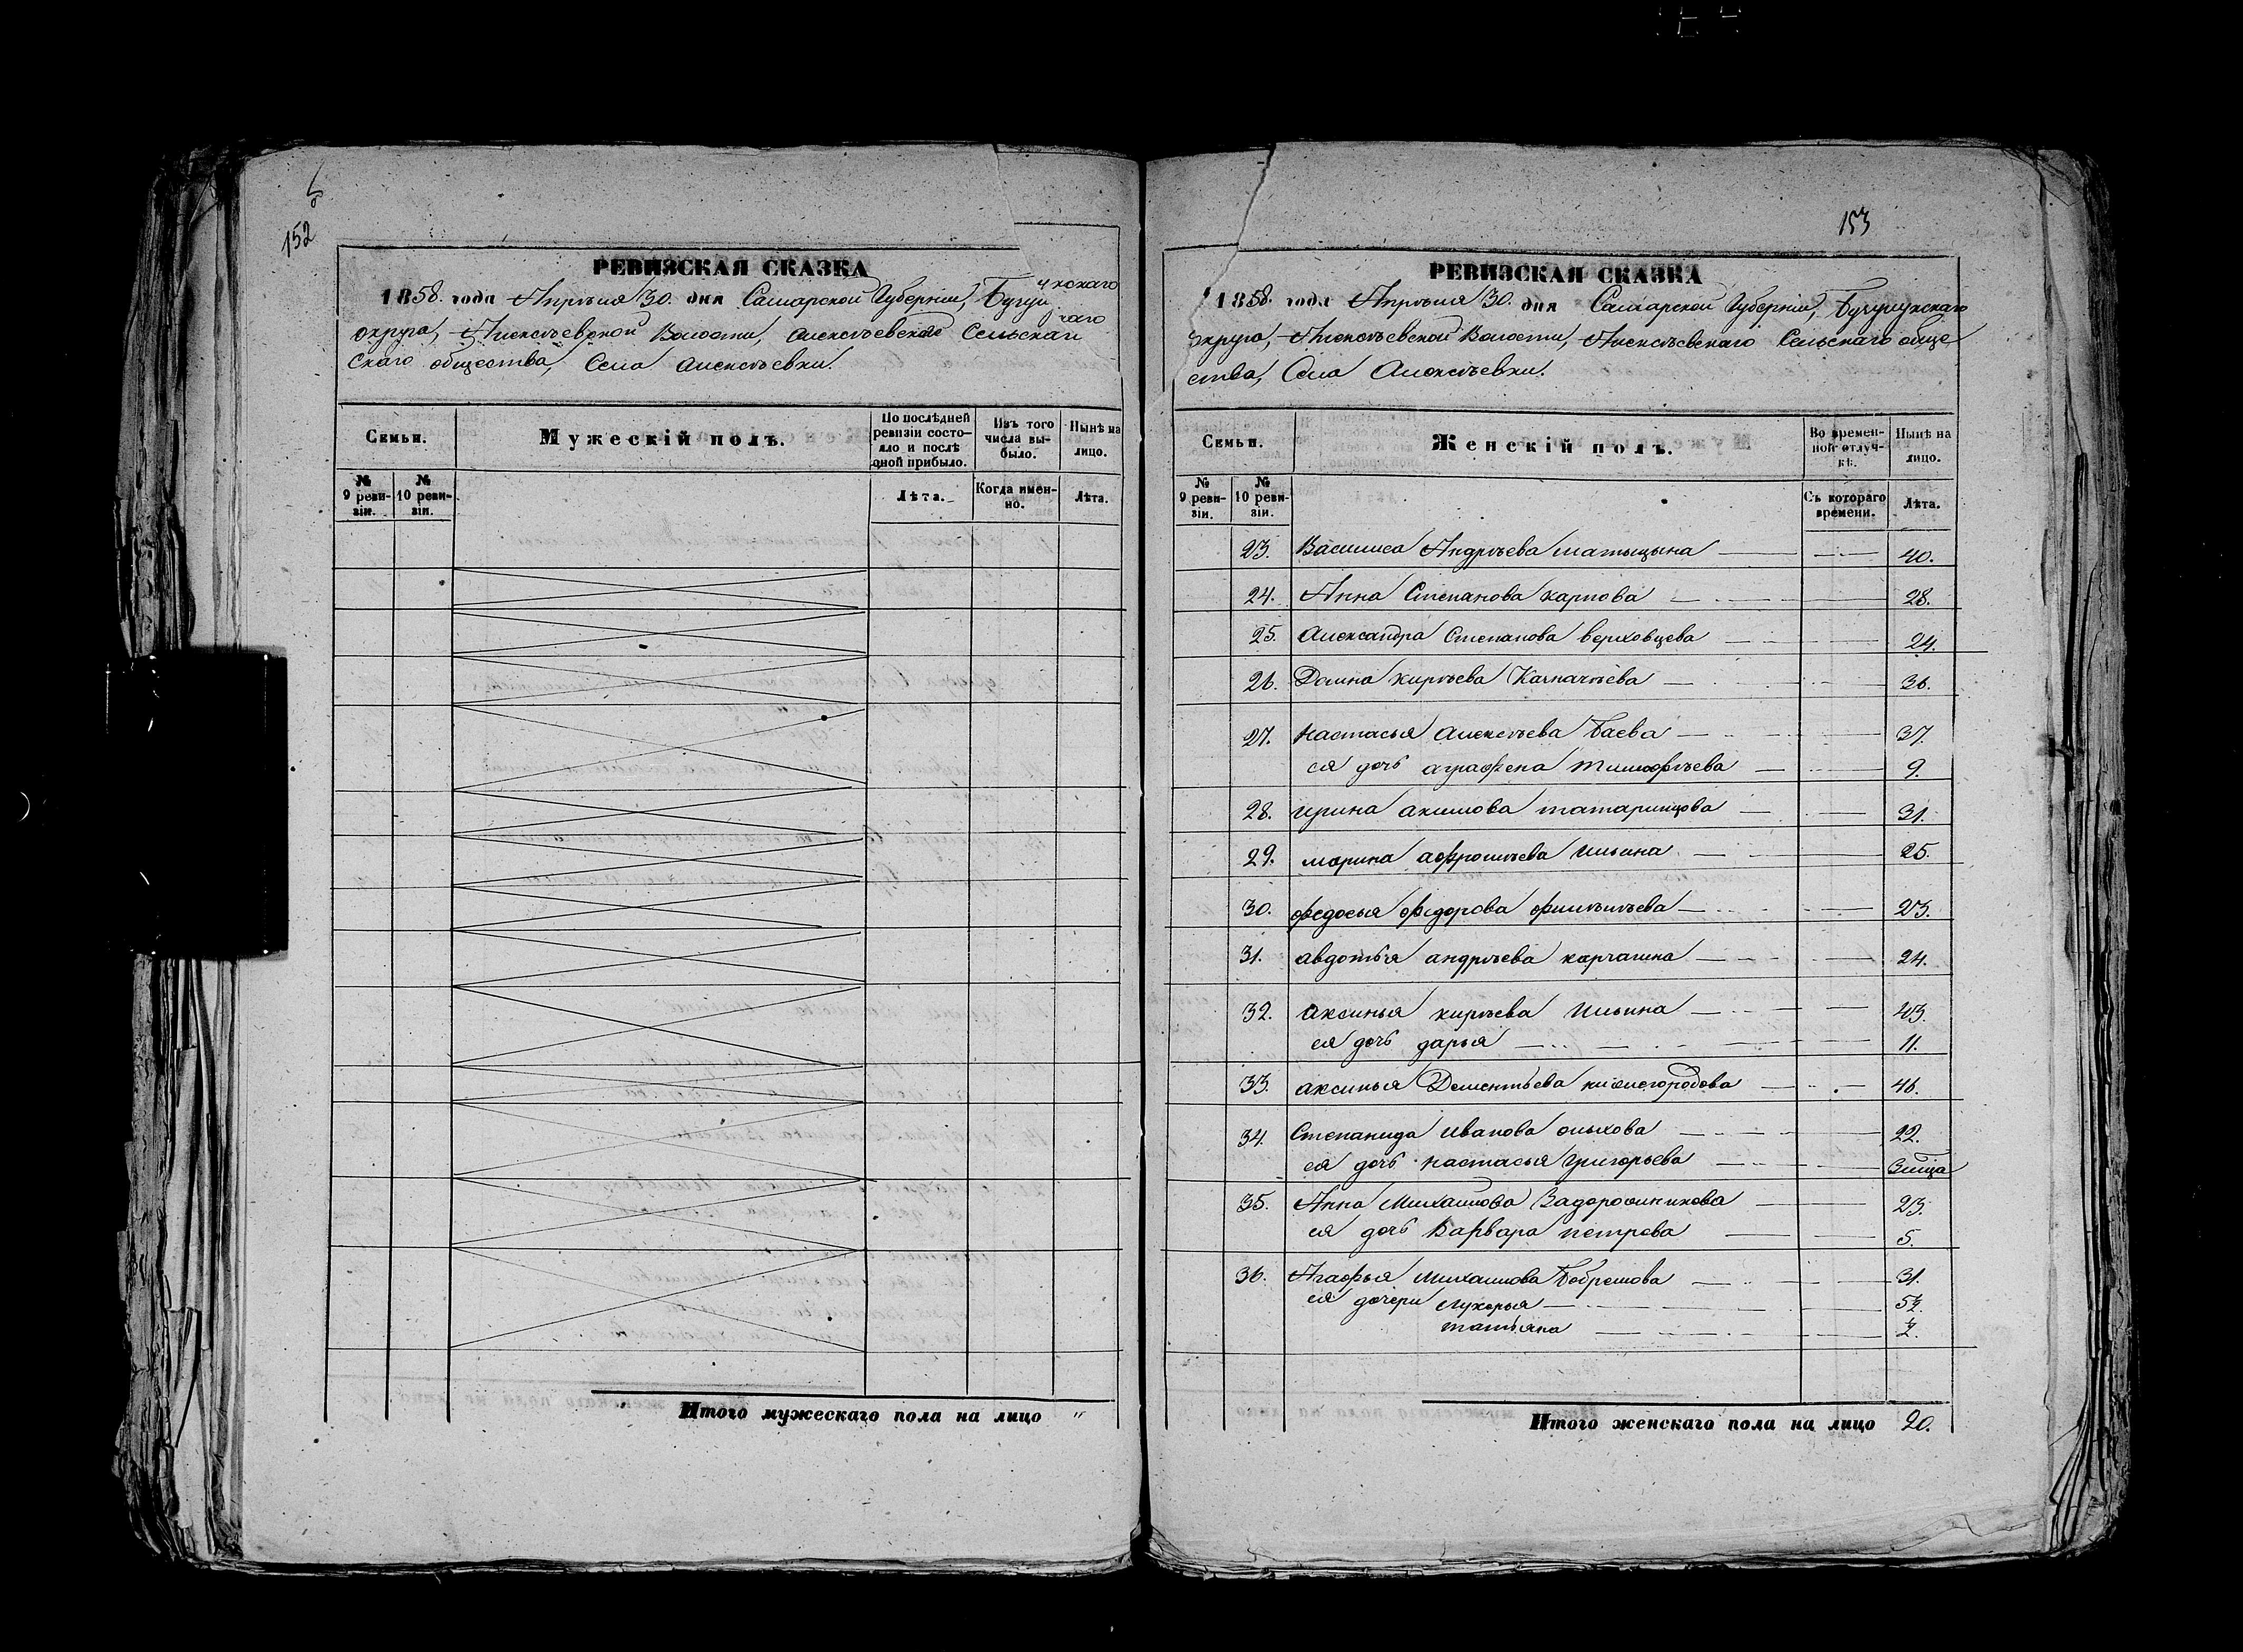 152
РЕВИЗСКАЯ СКАЗКА
1858. года Апрѣля 30. дня Самарской Губерніи,
округа, Алексѣевской Волости, Алексѣевскаго
скаго общества, Села Алексѣевки.
Семьи.
Мужескій полъ.
По послѣдней ревизіи состояло и послѣ оной прибыло.
Изъ того числа выбыло.
Нынѣ на лицо.
№ 9 ревизіи.
№ 10 ревизіи.
Лѣта.
Когда именно.
Лѣта.
Итого мужескаго пола на лицо "
153
РЕВИЗСКАЯ СКАЗКА
1858. года Апрѣля 30. дня Самарской Губерніи,
округа, Алексѣевской Волости, Алексѣевскаго Сельскаго обще
ства, Села Алексѣевки.
Семьи.
Женскій полъ.
Во временной отлучкѣ.
Нынѣ на лицо.
№ 9 ревизіи.
№ 10 ревизіи.
Съ котораго времени.
Лѣта.
23. Василиса Андрѣева 40.
24. Анна Степанова карпова 28.
25. Александра Степанова верховцева 24.
26. кирѣева Казначѣева 36.
27. настасья Алексѣева Баева 37.
ея дочь аграфена тимофѣева 9.
28. ирина акимова татаринцова 31.
29. марина Ильина 25.
30. федосья федорова 23.
31. авдотья андрѣева карчагина 24.
32. аксинья кирѣева Ильина 43.
ея дочь дарья 11.
33. аксинья Дементьева нижегородова 46.
34. Степанида иванова 22.
ея дочь настасья Григорьева
35. Анна Михайлова Задорожникова 23.
ея дочь Варвара петрова 5.
36. Агафья михайлова 31.
ея дочери лукерья 5½.
татьяна ½.
Итого женскаго пола на лицо 20.